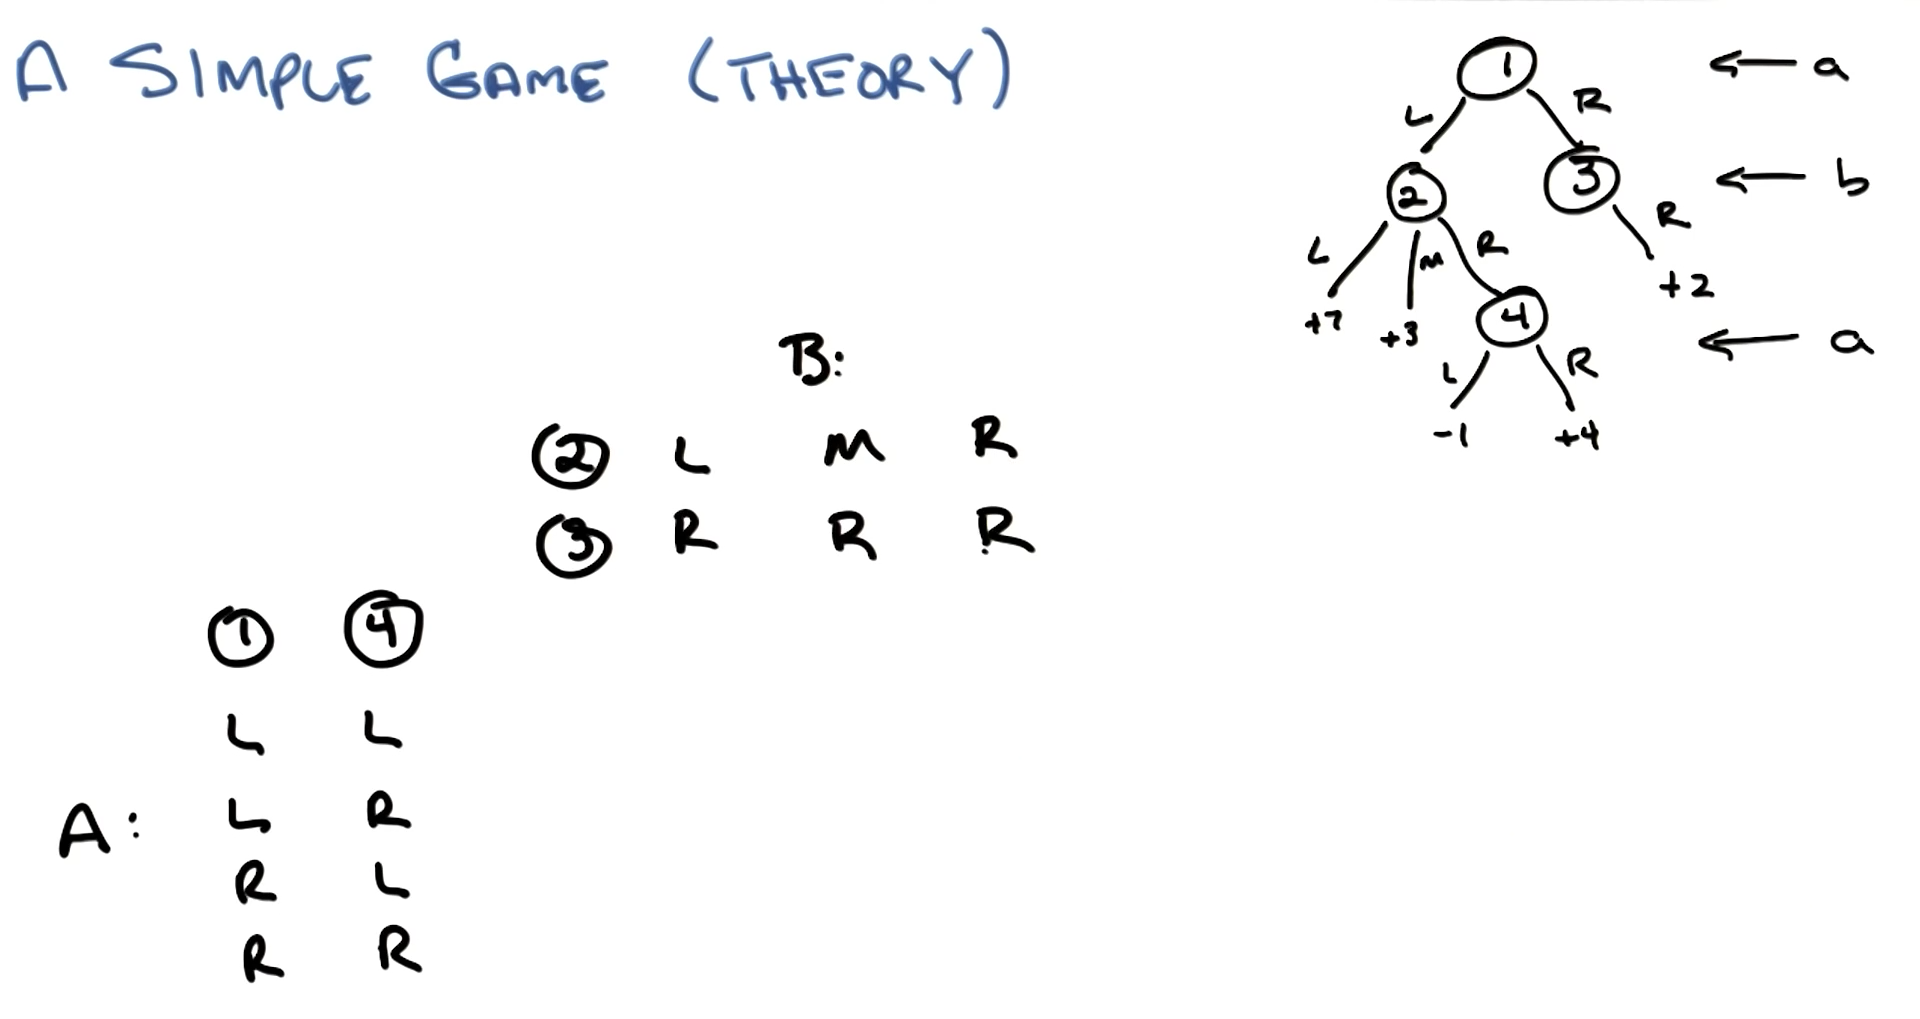 A SIMPLE GAME (THEORY)
1 ← a
L R
2 3 ← b
L M R R
+7 +3 4 +2
← a
L R
-1 +4
B:
2 L M R
3 R R R
1 4
L L
A: L R
R L
R R